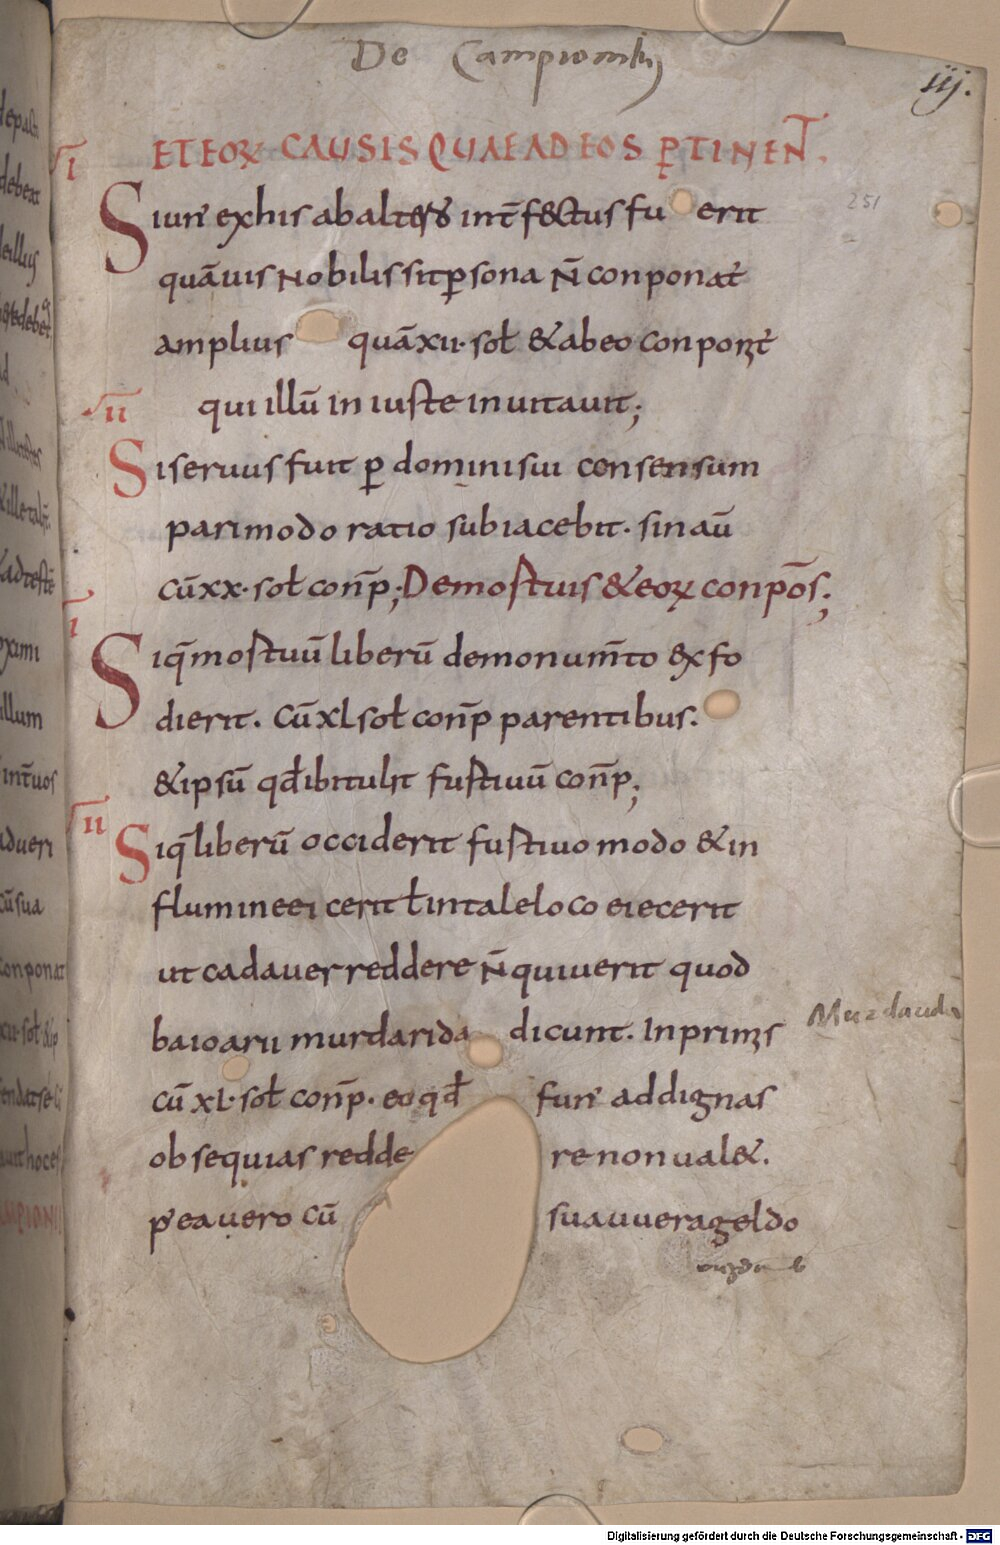 De Campionib;
iij.
ETEOꝜ CAUSIS QUAE AD EOS ꝑTINENT.
251
I
Si un̄ ex his ab alt͛s int̄fectus fu erit
quā uis nobilis sit ꝑsona n̄ conponat̄
amplius quā xii. soł & ab eo conponat̄
qui illū in iuste inuitauit;
II
Si seruus fuit ꝑ domini sui consensum
pari modo ratio subiacebit. sin aū
cū xx. soł con̄p; De mortuis & eoꝝ conpōs;
I
Si q̄ mortuū liberū de monum̄to exfo
dierit. Cū xl soł con̄p parentibus.
& ipsū qđ ibi tulit furtiuū con̄p;
II
Si q̄ liberū occiderit furtiuo modo & in
flumine eiecerit ł in tale loco eiecerit
ut cadauer reddere n̄ quiuerit quod
baioarii murdarida dicunt. In primis
Murdauda
cū xl. soł con̄p. eo qđ fun̄ ad dignas
obsequias redde re non ual&.
p̄ea uero cū sua uuerageldo
Digitalisierung gefördert durch die Deutsche Forschungsgemeinschaft - DFG